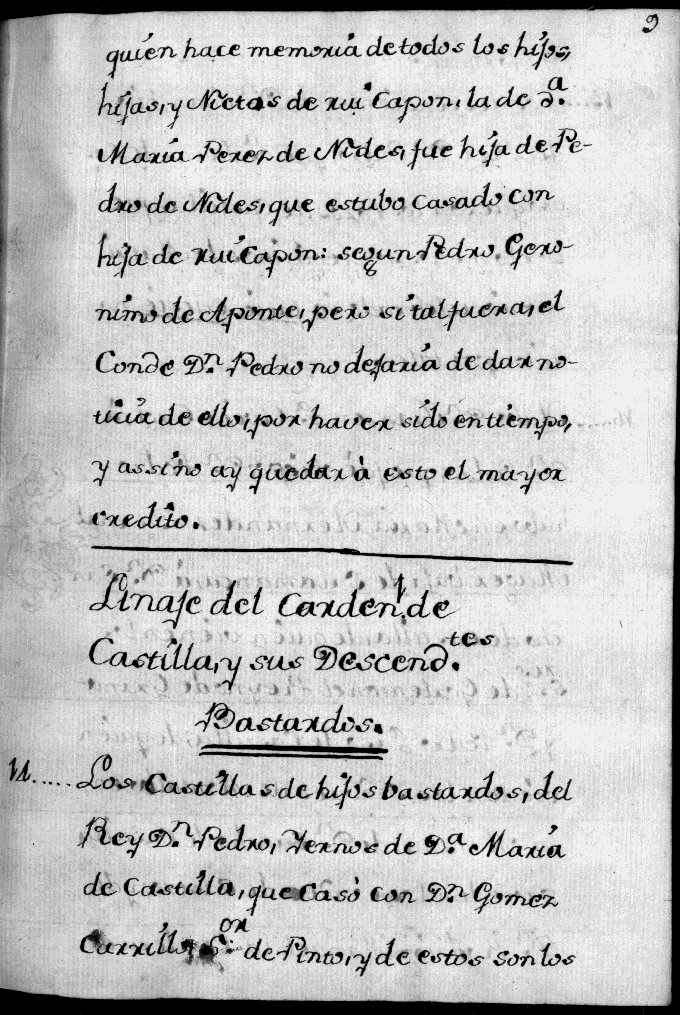 9
quién hace memoria de todos los hijos,
hijas, y Nietas de rui Capon, la de d.ª
Maria Perez de Nides, fue hija de Pe-
dro de Nides, que estubo casado con
hija de rui Capon: segun Pedro Gero-
nimo de Aponte, pero si tal fuera, el
Conde D.n Pedro no dejaria de dar no-
ticia de ello, por haver sido en tiempo,
y assi no ay que dar à esto el mayor
credito.
Linaje del Carden.l de
Castilla, y sus Descend.tes
Bastardos.
Los Castillas de hijos bastardos, del
Rey D.n Pedro, Yernos de D.ª Maria
de Castilla, que Casò con D.n Gomez
Carrillo, S.or de Pinto, y de estos son los